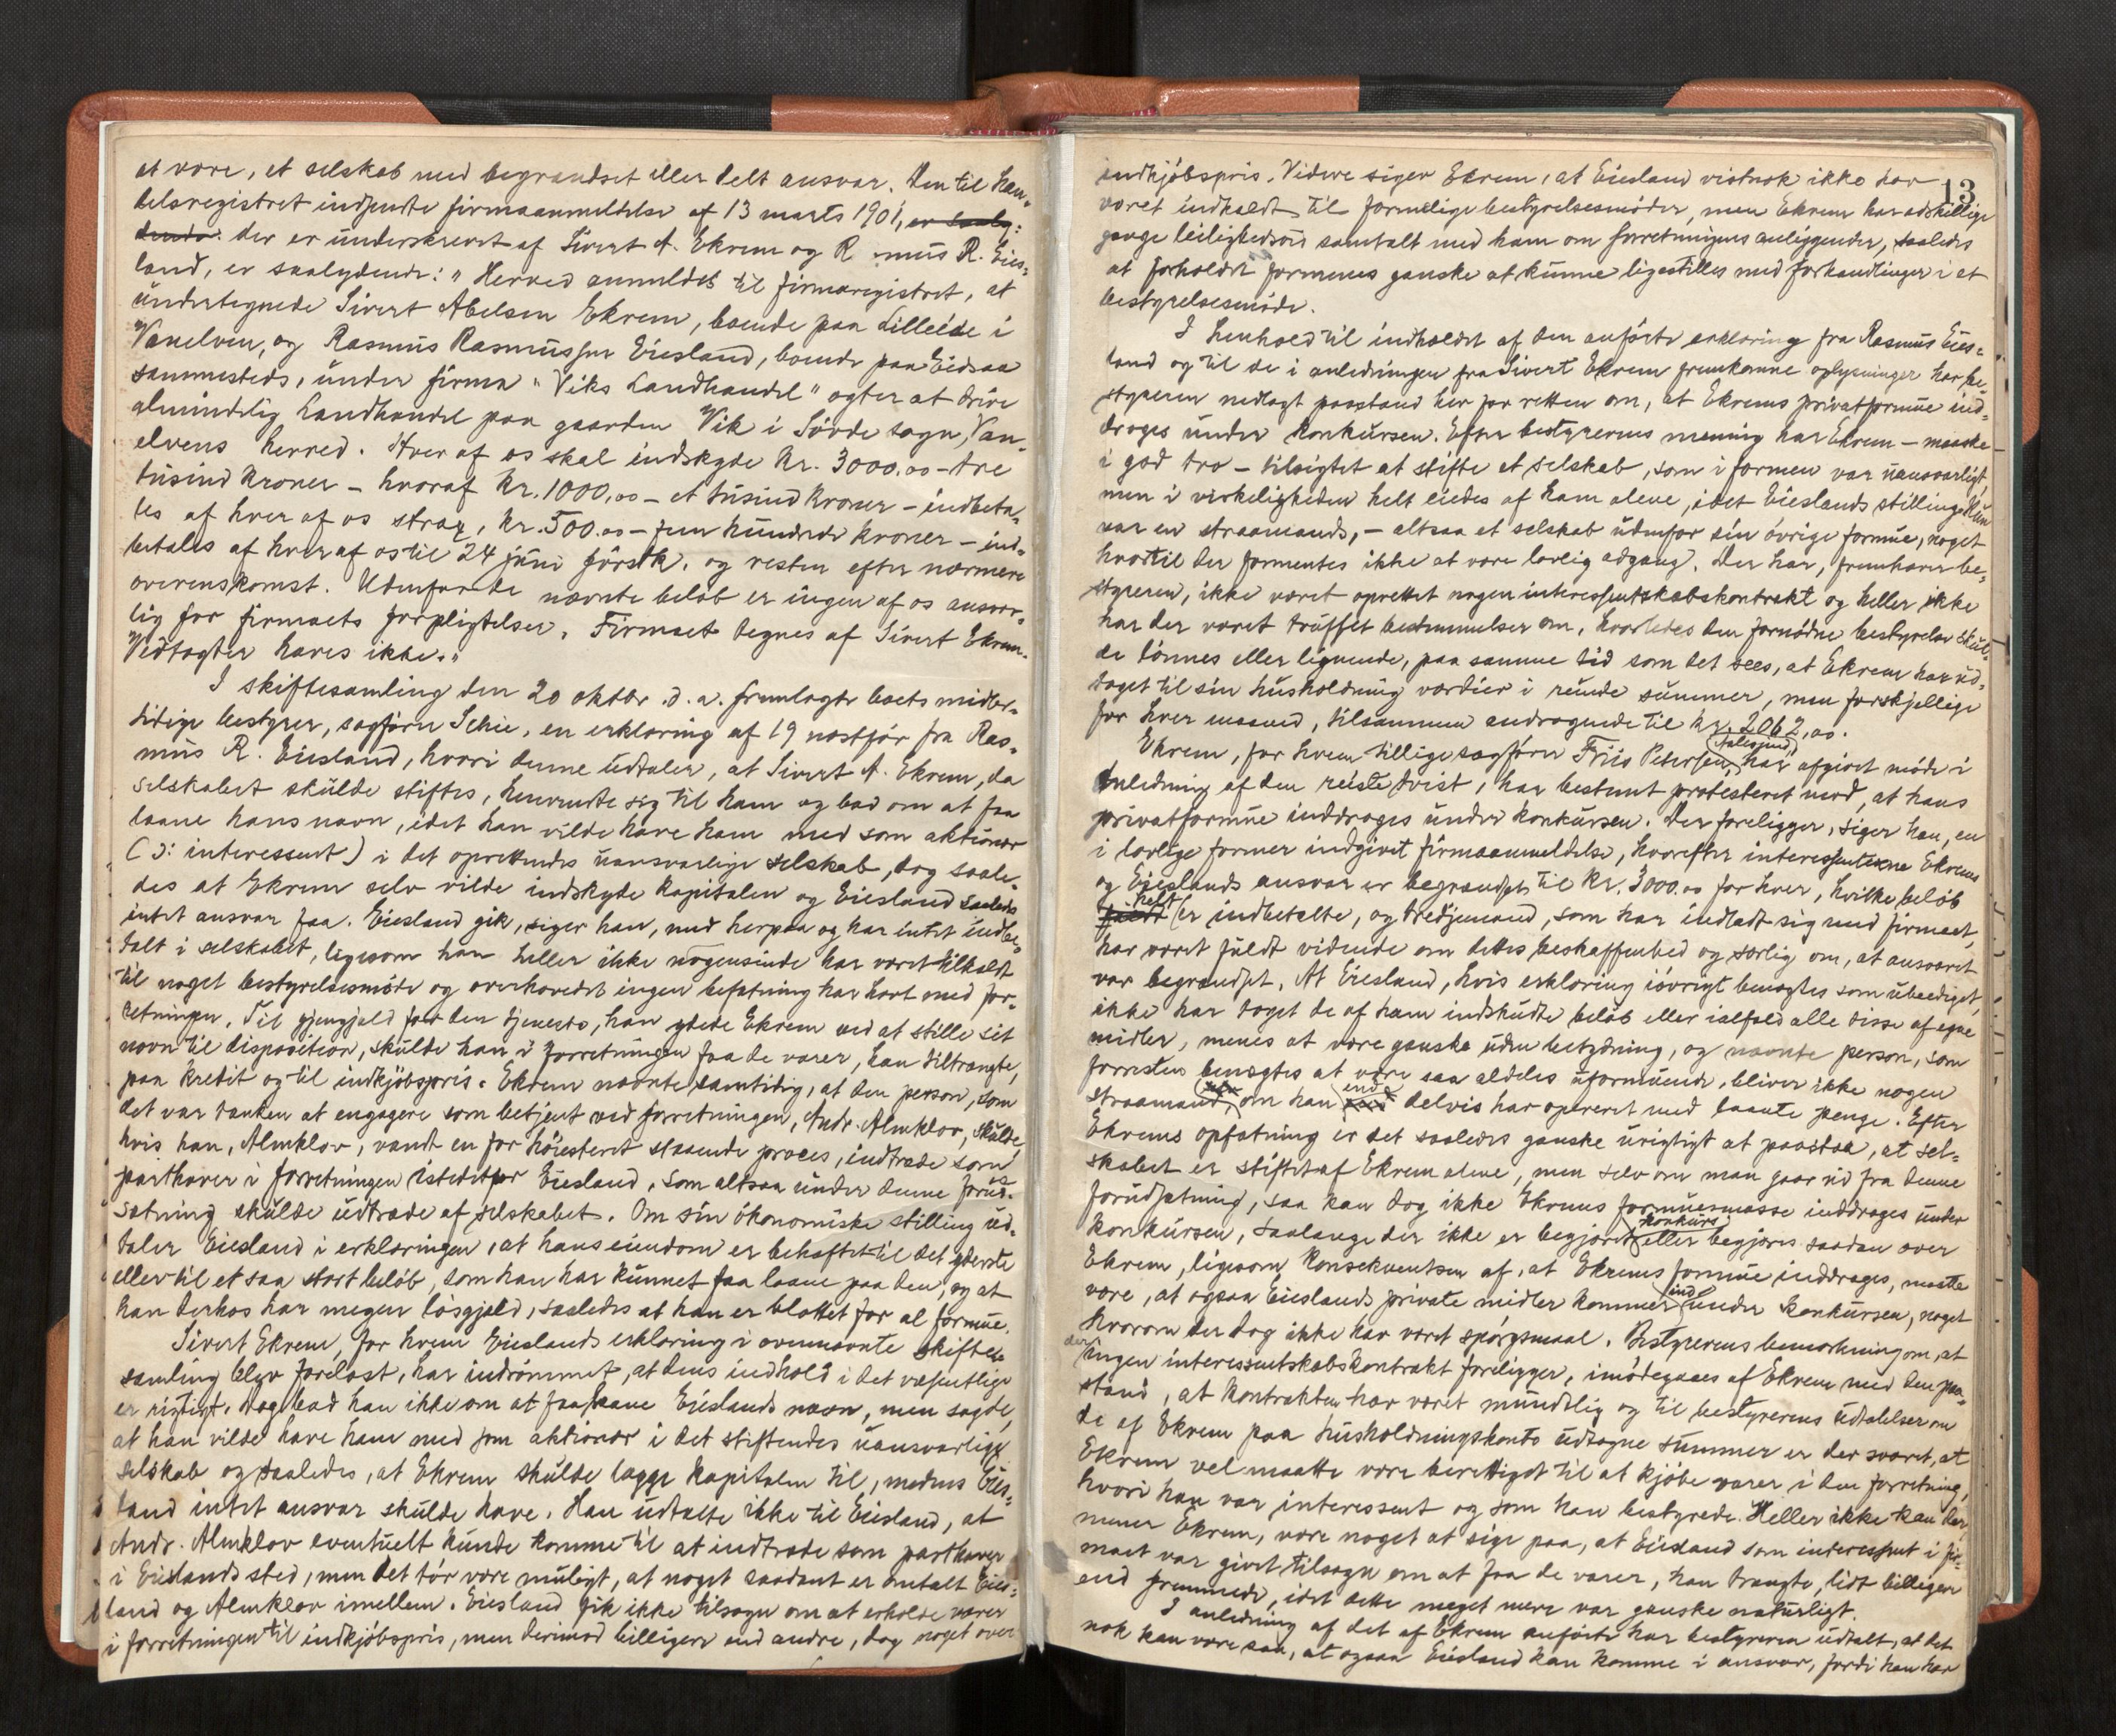 at være, et selskab med begrændset eller delt ansvar. Den til han-
delsregistret indsendte firmaanmeldelse af 13 marts 1901, er saaly-
dende: der er underskrevet af Sivert A. Ekrem og R mus R. Eies-
land, er saalydende: "Herved anmeldes til firmaregistret, at
undertegnede Sivert Abelsen Ekrem, boende paa Lilleide i
Vanelven, og Rasmus Rasmussen Eiesland, boende paa Eidsaa
sammesteds, under firma "Viks Landhandel" agter at drive
almindelig Landhandel paa gaarden Vik i Søvde sogn, Van-
elvens herred. Hver af os skal indskyde kr. 3000.00 - tre
tusind kroner - hvoraf kr. 1000,00 - et tusind kroner - indbeta-
les af hver af os strax, kr. 500.00 - fem hundrede kroner - ind-
betales af hver af os til 24 juni førstk. og resten efter nærmere
overenskomst. Udenfor de nævnte beløb er ingen af os ansvar-
lig for firmaets forpligtelser. Firmaet tegnes af Sivert Ekrem.
Vedtægter haves ikke."
I skiftesamling den 20 oktbr. d. a. fremlagte boets midler-
tidige bestyrer, sagfører Schie, en erklæring af 19 næstfør fra Ras-
mus R. Eiesland, hvori denne udtaler, at Sivert A. Ekrem, da
selskabet skulde stiftes, henvendte sig til ham og bad om at faa
laane hans navn, idet han vilde have ham med som aktionær
(ɔ: interessent) i det oprettendes uansvarlige selskab, dog saale-
des at Ekrem selv vilde indskyde kapitalen og Eiesland saaledes
intet ansvar faa. Eiesland gik, siger han, med herpaa og har intet indbe-
talt i selskabet, ligesom han heller ikke nogensinde har været tilkaldt
til noget bestyrelsesmøde og overhovedet ingen befatning har havt med for-
retningen. Til gjengjæld for den tjeneste, han ydede Ekrem ved at stille sit
navn til disposition, skulde han i forretningen faa de varer, han tiltrængte,
paa kredit og til indkjøbspris. Ekrem nævnte samtidig, at den person, som
det var tanken at engagere som betjent ved forretningen, Andr. Almklov, skulde,
hvis han, Almklov, vandt en for høiesteret staaende proces, indtræde som
parthaver i forretningen istedetfor Eiesland, som altsaa under denne forud-
sætning skulde udtræde af selskabet. Om sin økonomiske stilling ud-
taler Eiesland i erklæringen, at hans eiendom er behæftet til det yderste
eller til et saa stort beløb, som han har kunnet faa laane paa den, og at
han derhos har megen løsgjæld, saaledes at han er blottet for al formue.
Sivert Ekrem, for hvem Eieslands erklæring i ovennævnte skifte-
samling blev forelæst, har indrømmet, at dens indhold i det væsentlige
er rigtigt. Dog bad han ikke om at faa laane Eieslands navn, men sagde,
at han vilde have ham med som aktionær i det stiftendes uansvarlige
selskab og saaledes, at Ekrem skulde lægge kapitalen til, medens Eies-
land intet ansvar skulde have. Han udtalte ikke til Eiesland, at
Andr. Almklov eventuelt kunde komme til at indtræde som parthaver
i Eieslands sted, men det tør være muligt, at noget saadant er omtalt Eies-
land og Almklov imellem. Eiesland fik ikke tilsagn om at erholde varer
i forretningen til indkjøbspris, men derimod billigere end andre, dog noget over
13
indkjøbspris. Videre siger Ekrem, at Eiesland vistnok ikke har
været indkaldt til formelige bestyrelsesmøder, men Ekrem har adskillige
gange leilighedsvis samtalt med ham om forretningens anliggender, saaledes
at forholdet formenes ganske at kunne ligestilles med forhandlinger i et
bestyrelsesmøde.
I henhold til indholdet af den anførte erklæring fra Rasmus Eies-
land og til de i anledningen fra Sivert Ekrem fremkomne oplysninger har be-
styreren nedlagt paastand her for retten om, at Ekrems privatformue ind-
drages under konkursen. Efter bestyrerens mening har Ekrem - maaske
i god tro - tilsigtet at stifte et selskab, som i formen var uansvarligt,
men i virkeligheden helt eiedes af ham alene, idet Eieslands stilling kun
var en straamands, - altsaa et selskab udenfor sin øvrige formue, noget
hvortil der formentes ikke at være lovlig adgang. Der har, fremhæver be-
styreren, ikke været oprettet nogen interessentskabskontrakt og heller ikke
har der været truffet bestemmelser om, hvorledes den fornødne bestyrelse skul-
de lønnes eller lignende, paa samme tid som det sees, at Ekrem har ud-
taget til sin husholdning værdier i runde summer, men forskjellige
for hver maaned, tilsammen andragende til kr. 2062,00.
Ekrem, for hvem tillige sagfører Friis Petersen, Aalesund, har afgivet møde i
anledning af den reiste tvist, har bestemt protesteret mod, at hans
privatformue inddrages under konkursen. Der foreligger, siger han, en
i lovlige former indgivet firmaanmeldelse, hvorefter interessenterne Ekrems
og Eieslands ansvar er begrændset til kr. 3000.00 for hver, hvilke beløb
helt er indbetalte, og tredjemand, som har indladt sig med firmaet,
har været fuldt vidende om dettes beskaffenhed og særlig om, at ansvaret
var begrændset. At Eiesland, hvis erklæring iøvrigt benægtes som ubeediget,
ikke har taget de af ham indskudte beløb eller ialfald alle disse af egne
midler, menes at være ganske uden betydning, og nævnte person, som
forresten benægtes at være saa aldeles uformuende, bliver ikke nogen
straamand, om han endo delvis har opereret med laante penge. Efter
Ekrems opfatning er det saaledes ganske urigtigt at paastaa, at sel-
skabet er stiftet af Ekrem alene, men selv om man gaar ud fra denne
forudsætning, saa kan dog ikke Ekrems formuesmasse inddrages under
konkursen, saalænge der ikke er begjæret eller begjæres saadan konkurs over
Ekrem, ligesom konsekventsen af, at Ekrems formue inddrages, maatte
være, at ogsaa Eieslands private midler kommer ind under konkursen, noget
hvorom der dog ikke har været spørgsmaal. Bestyrerens bemærkning om, at
der ingen interessentskabskontrakt foreligger, imødegaaes af Ekrem med den paa-
stand, at kontrakten har været mundtlig og til bestyrerens udtalelser om
de af Ekrem paa husholdningskonto udtagne summer er der svaret, at
Ekrem vel maatte være berettiget til at kjøbe varer i den forretning,
hvori han var interessent og som han bestyrede. Heller ikke kan der,
mener Ekrem, være noget at sige paa, at Eiesland som interessent i fir-
maet var givet tilsagn om at faa de varer, han trængte, lidt billigere
end fremmede, idet dette meget mere var ganske naturligt.
I anledning af det af Ekrem anførte har bestyreren udtalt, at det
nok kan være saa, at ogsaa Eiesland kan komme i ansvar, fordi han har